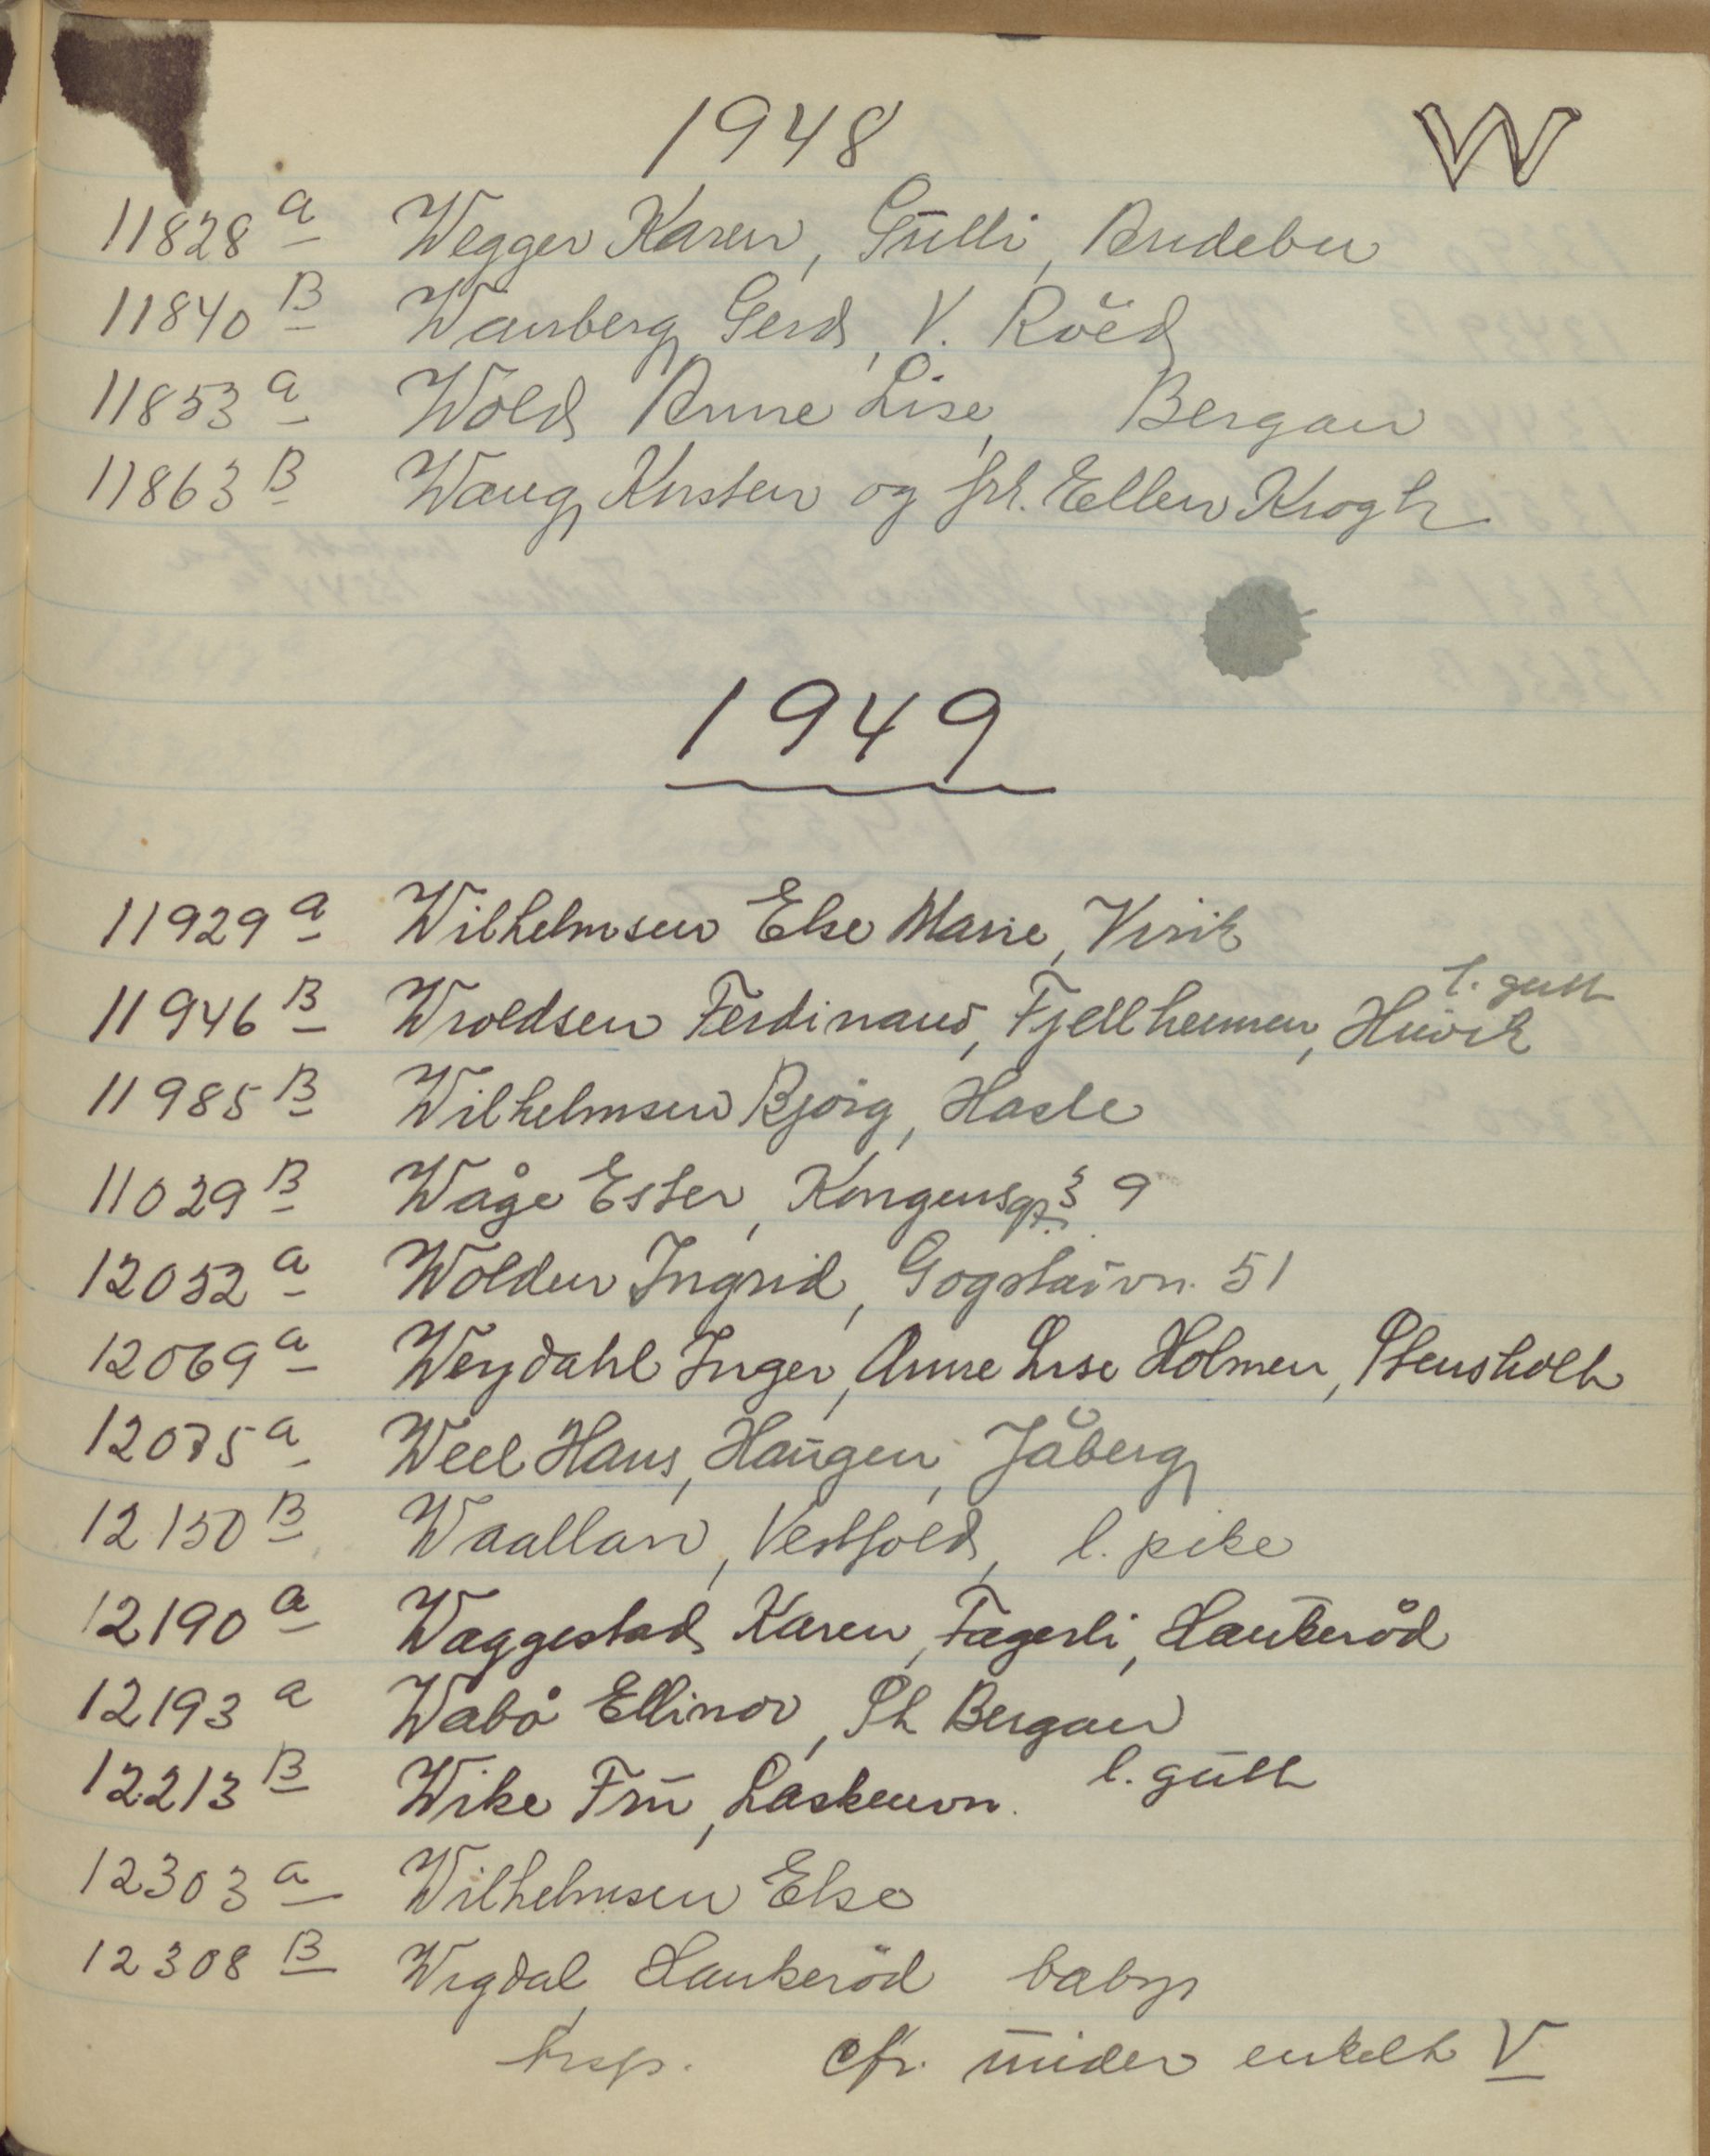 1948 W
11828 a Wegger Karen, Gulli, Andebu
11840 B Warberg Gerd, V. Röed
11853 a Wold Anne Lise, Bergan
11863 B Wang Kirsten og frk. Ellen Krogh
1949
11929 a Wilhelmsen Else Marie, Virik
l. gutt
11946 B Wroldsen Ferdinand, Fjellheimen, Husvik
11985 B Wilhelmsen Bjørg, Hasle
11029 B Wåge Ester, Kongensgt. 9
12052 a Wolden Ingrid, Gogstadvn. 51
12069 a Weydahl Inger, Anne Lise Holmen, Stensholt
12075 a Weel Hans, Haugen, Jåberg
12150 B Waallan, Vestfold, l. pike
12190 a Waggestad Karen, Fagerli, Haukerød
12193 a Wabø Ellinor, Ph Bergan
12213 B Wike Fru, Laskenvn. l. gutt
12303 a Wilhelmsen Else
12308 B Wigdal, Haukerød baby
cfr. under enkelt V